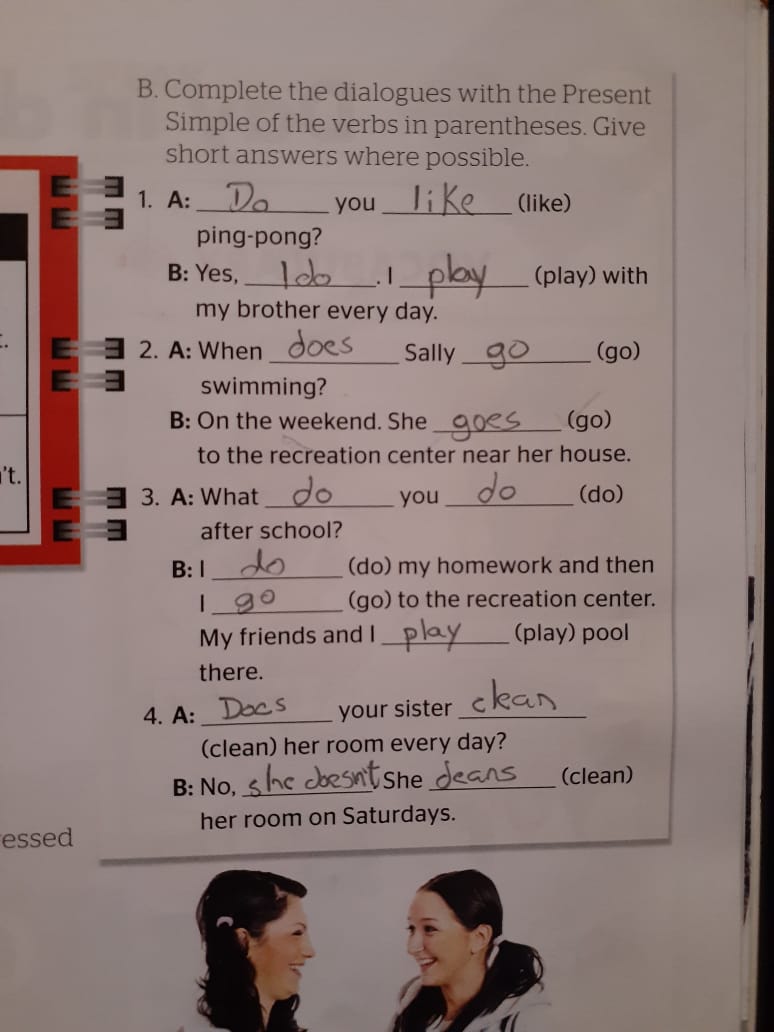 B. Complete the dialogues with the Present
Simple of the verbs in parentheses. Give
short answers where possible.
1. A: Do you like (like)
ping-pong?
B: Yes, I do. I play (play) with
my brother every day.
2. A: When does Sally go (go)
swimming?
B: On the weekend. She goes (go)
to the recreation center near her house.
3. A: What do you do (do)
after school?
B: I do (do) my homework and then
I go (go) to the recreation center.
My friends and I play (play) pool
there.
4. A: Does your sister clean
(clean) her room every day?
B: No, she doesn't. She cleans (clean)
her room on Saturdays.
't.
essed